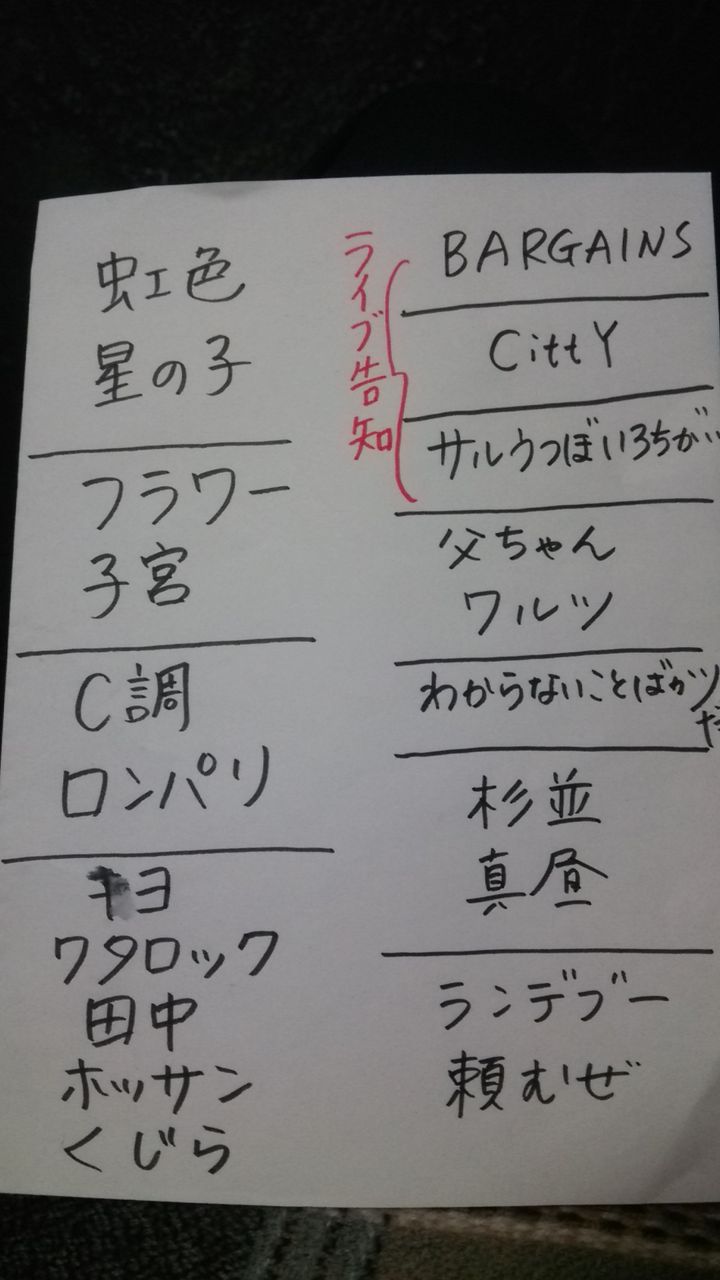 虹色
星の子
フラワー
子宮
C調
ロンパリ
キヨ
ワタロック
田中
ホッサン
くじら
ライブ告知
BARGAINS
CittY
サルうつぼいろちがい
父ちゃん
ワルツ
わからないことばかり
だ
杉並
真昼
ランデブー
頼むぜ